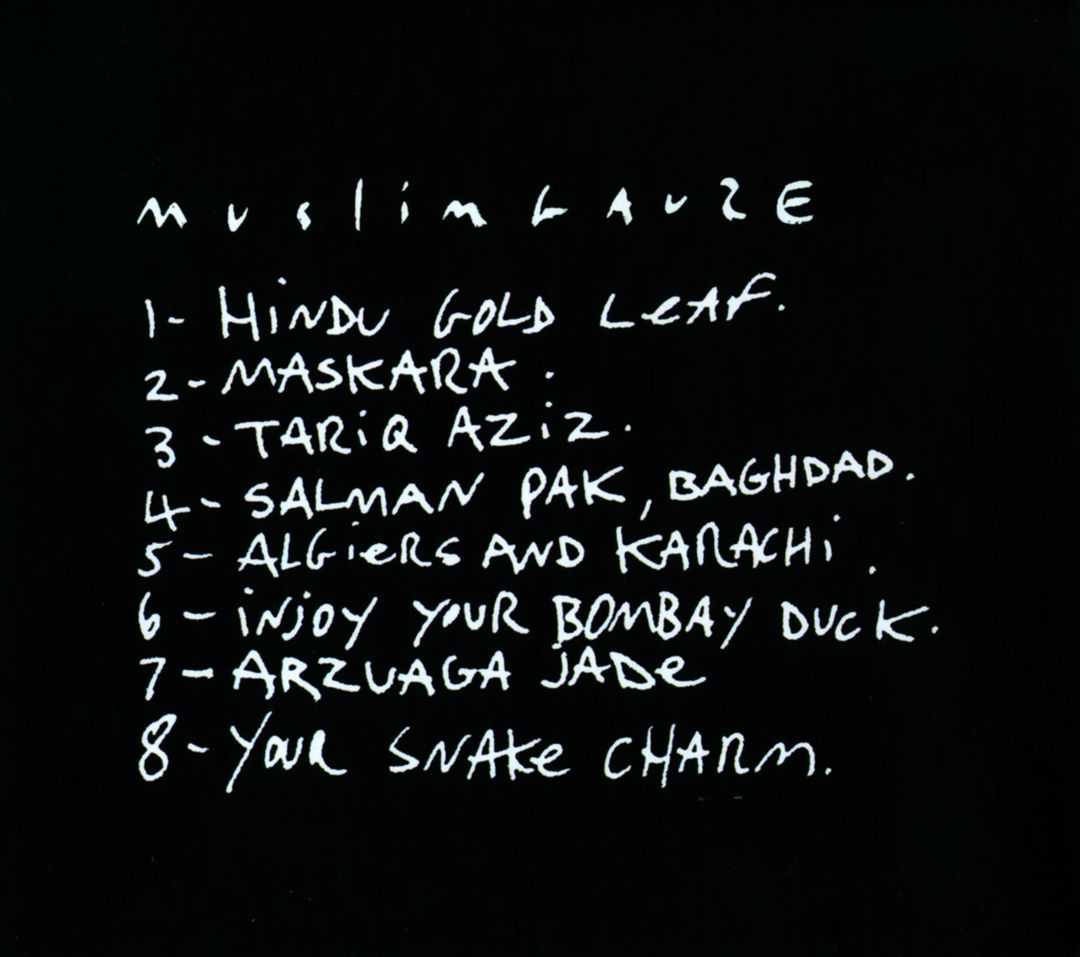 muslimGAUZE
1- HiNDU GOLD LeAf.
2- MASKARA.
3- TARiQ AZiZ.
4- SALMAN PAK, BAGHDAD.
5- ALGieRS AND KARACHi.
6- iNjOY YOUR BOMBAY DUCK.
7- ARZUAGA JADe
8- YOUR SNAKe CHARM.